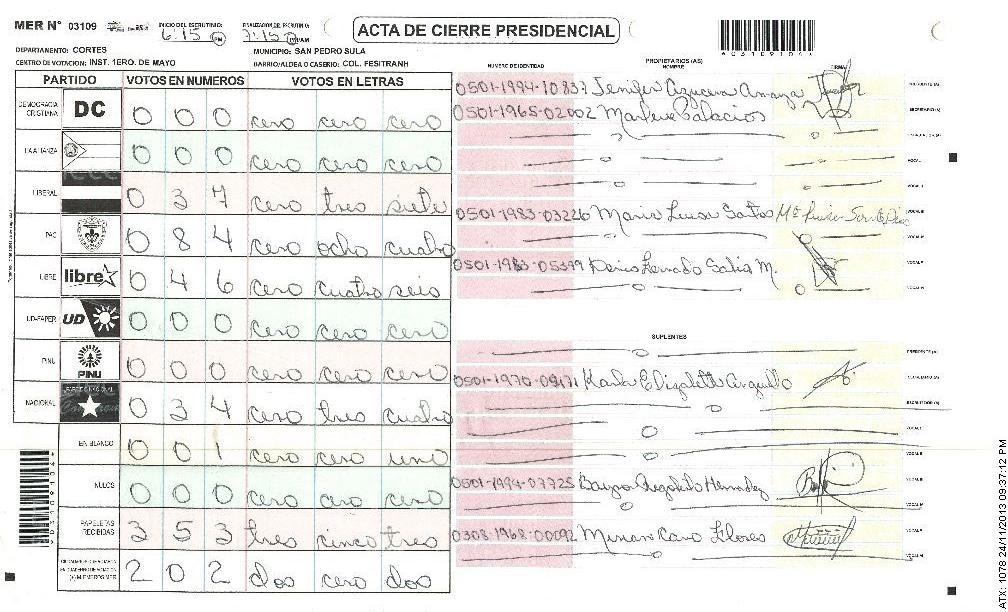 MER N° 03109
INICIO DEL ESCRUTINIO: 6:15 PM
FINALIZACION DEL ESCRUTINIO: 7:15 PM/AM
ACTA DE CIERRE PRESIDENCIAL
DEPARTAMENTO: CORTES
MUNICIPIO: SAN PEDRO SULA
CENTRO DE VOTACION: INST. 1ERO. DE MAYO
BARRIO/ALDEA O CASERIO: COL. FESITRANH
PARTIDO VOTOS EN NUMEROS VOTOS EN LETRAS
DEMOCRACIA CRISTIANA DC 0 0 0 cero cero cero
LA ALIANZA 0 0 0 cero cero cero
LIBERAL 0 3 7 cero tres siete
PAC 0 8 4 cero ocho cuatro
LIBRE libre 0 4 6 cero cuatro seis
UD-FAPER UD 0 0 0 cero cero cero
PINU PINU 0 0 0 cero cero cero
NACIONAL 0 3 4 cero tres cuatro
EN BLANCO 0 0 1 cero cero uno
NULOS 0 0 0 cero cero cero
PAPELETAS RECIBIDAS 3 5 3 tres cinco tres
2 0 2 dos cero dos
NUMERO DE IDENTIDAD
PROPIETARIOS (AS)
NOMBRE
FIRMA
0501-1994-10837 Jenifer Azucena Amaya PRESIDENTE (A)
0501-1965-02002 Marlene Palacios SECRETARIO (A)
ESCRUTADOR (A)
VOCAL I
VOCAL II
0501-1983-03226 Maria Luisa Santos VOCAL III
VOCAL IV
0501-1983-05399 M. VOCAL V
SUPLENTES
PRESIDENTE (A)
0501-1970-09171 Karla Elizabeth Arguello SECRETARIO (A)
ESCRUTADOR (A)
VOCAL I
VOCAL II
0501-1994-07725 Hernandez VOCAL III
VOCAL IV
0308-1968-00092 Miriam Caro Flores VOCAL V
ATX: 1078 24/11/2013 09:37:12 PM